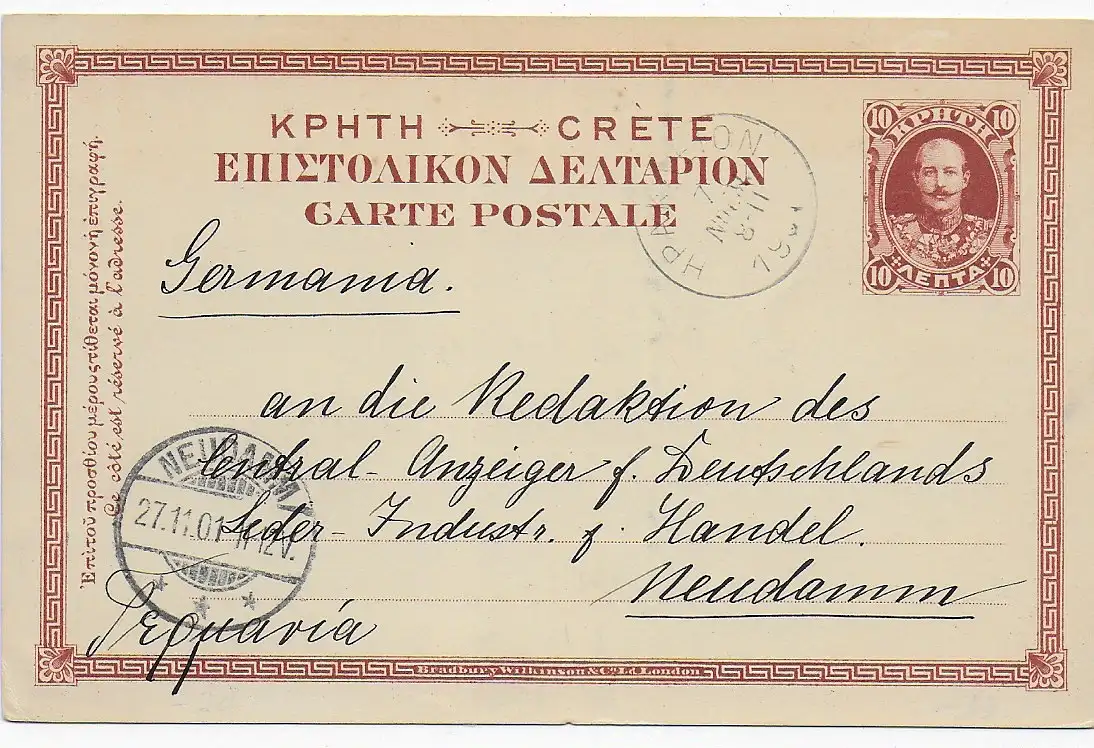 ΚΡΗΤΗ CRÈTE
ΕΠΙΣΤΟΛΙΚΟΝ ΔΕΛΤΑΡΙΟΝ
CARTE POSTALE
10 ΚΡΗΤΗ 10
10 ΛΕΠΤΑ 10
ΗΡΑΚΛΕΙΟΝ
7
8-11
Germania.
an die Redaktion des
Central-Anzeiger f. Deutschlands
Leder-Industr. f Handel.
Neudamm
Γερμανία
NEUDAMM
27.11.01 11-12V.
Ἐπὶ τοῦ προσθίου μέρους τίθεται μόνον ἡ ἐπιγραφή.
Ce côté est réservé à l'adresse.
Bradbury, Wilkinson & Co Ld London